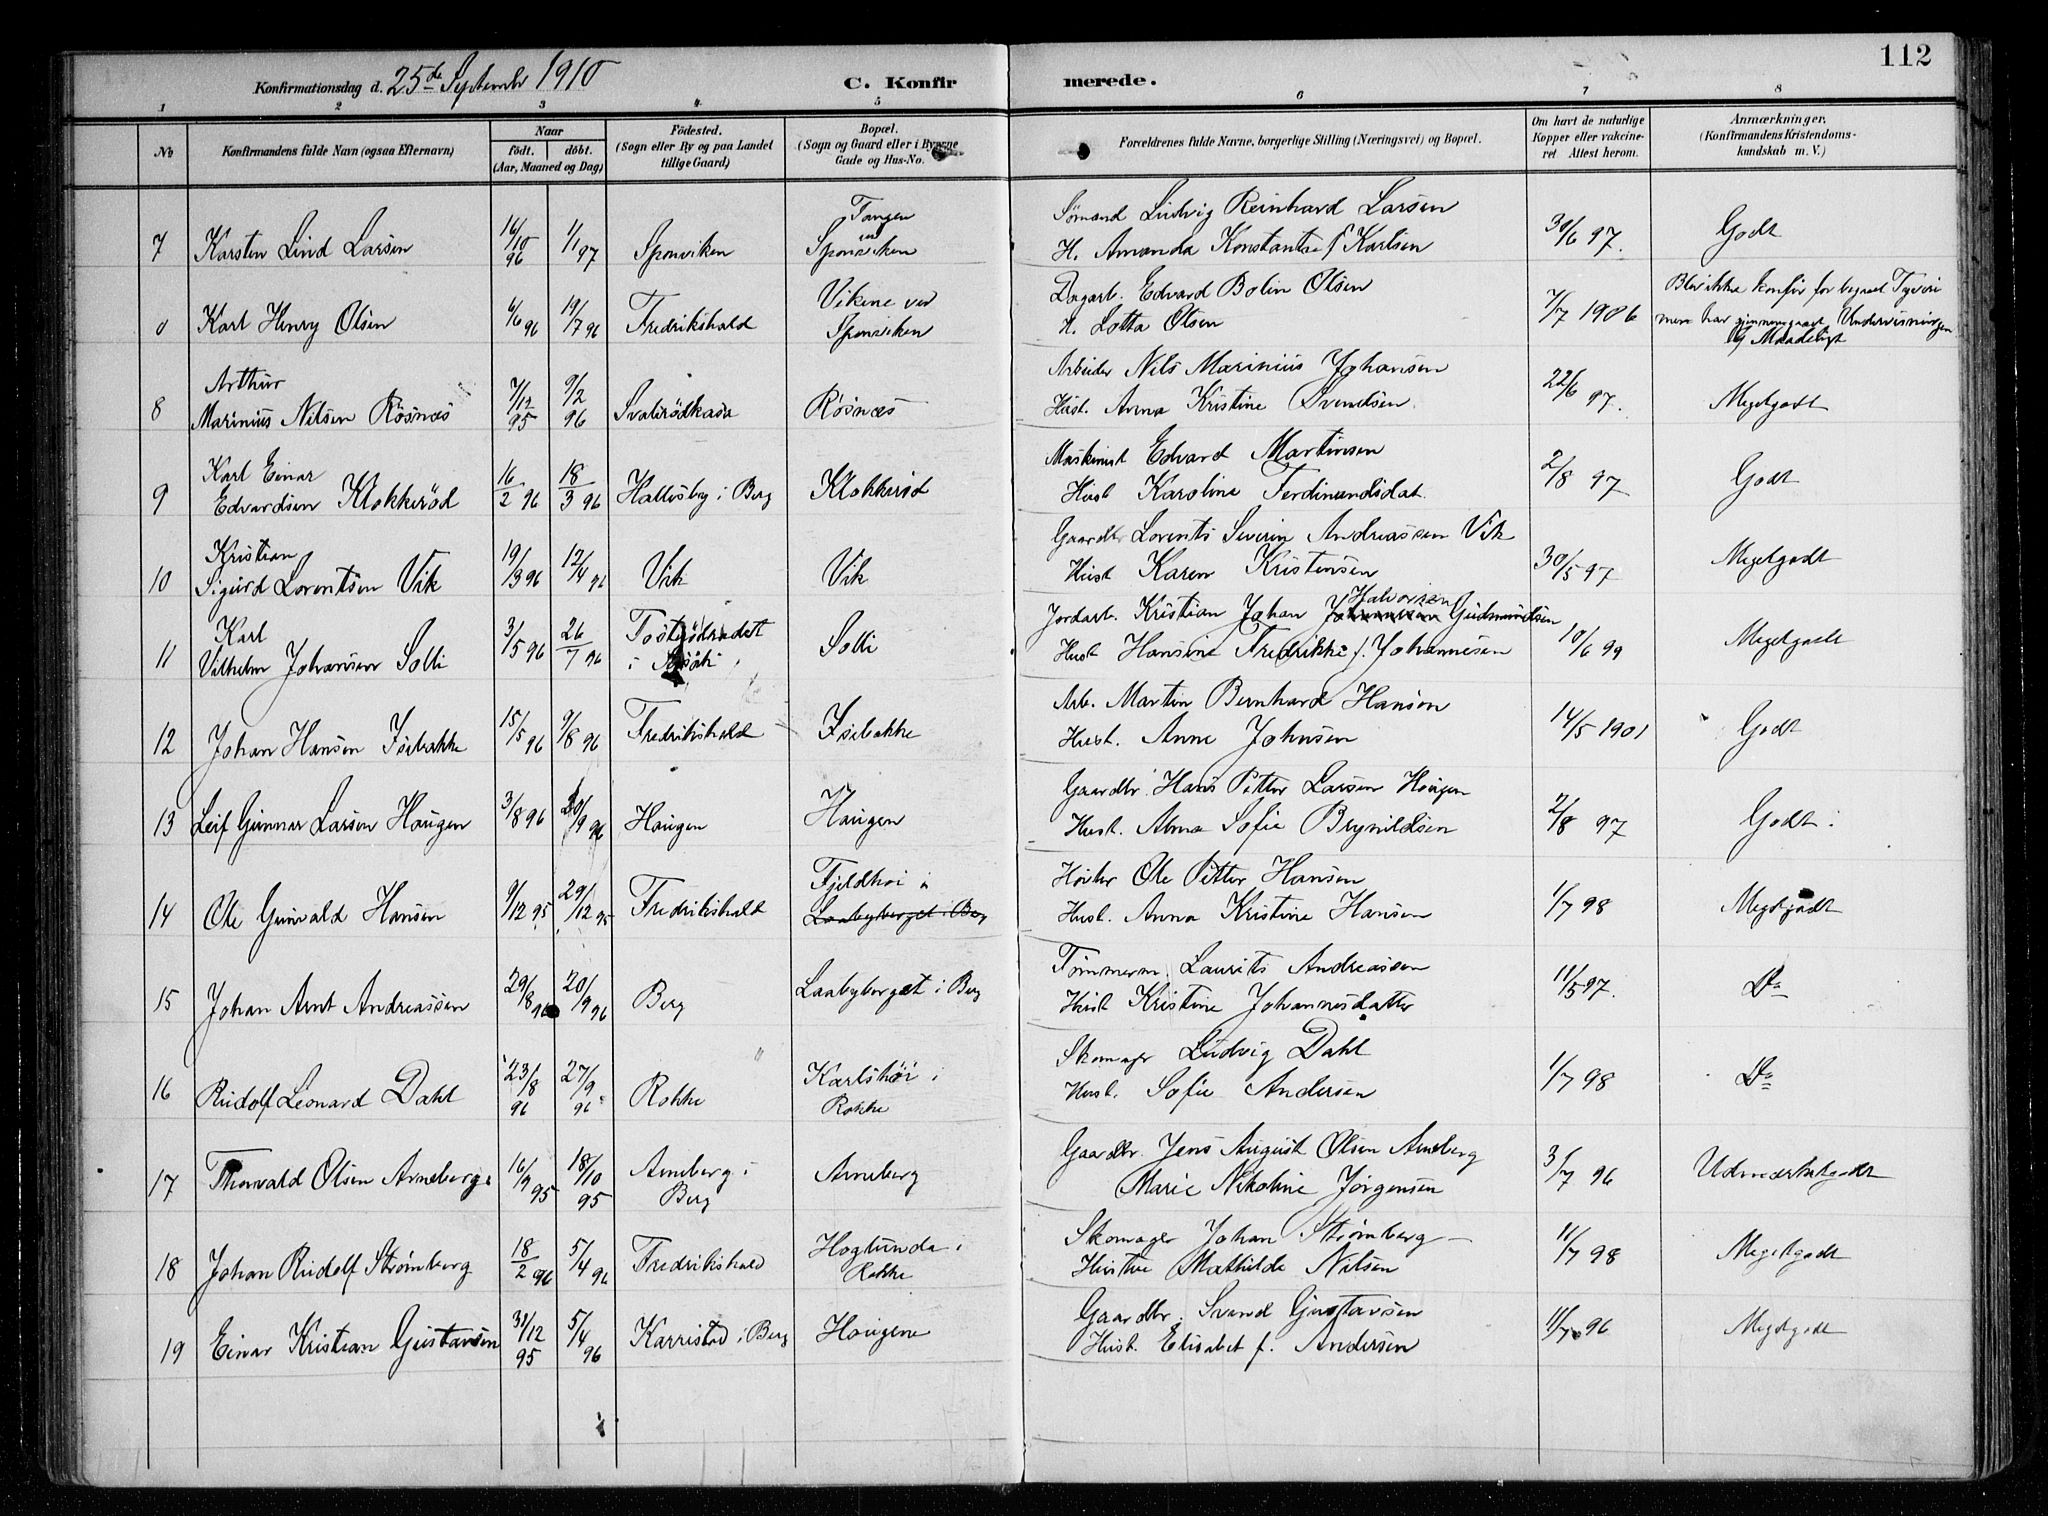 112
Konfirmationsdag d. 25de September 1910 C. Konfirmerede.
1 2 3 4 5 6 7 8
No Konfirmandens fulde Navn (ogsaa Efternavn) Naar født. døbt. (Aar, Maaned og Dag) Fødested. (Sogn eller By og paa Landet tillige Gaard) Bopæl. (Sogn og Gaard eller i Byerne Gade og Hus-No. Forældrenes fulde Navne, borgerlige Stilling (Næringsvei) og Bopæl. Om havt de naturlige Kopper eller vakcineret Attest herom. Anmærkninger. (Konfirmandens Kristendomskundskab m. V.)
7 Karsten Lind Larsen 16/10 96 1/1 97 Sponviken Tangen in Sponviken Sømand Ludvig Reinhard Larsen
H. Amanda Konstantse f Karlsen 30/6 97. Godt
Karl Henry Olsen 6/6 96 19/7 96 Fredrikshald Vikene ved Sponviken Dagarb. Edvard Bolin Olsen
H. Lotta Olsen 7/7 1906 Blev ikke konfir for begaaet Tyveri men har gjennemgaaet Undervisningen Maadeligt
8 Arthur Marinius Nilsen Røsnæs 7/12 95 9/2 96 Svalerødkasa Røsnæs Arbeider Nils Marinius Johansen
Hust. Anna Kristine Svendsen 22/6 97. Megetgodt
9 Karl Einar Edvardsen Klokkerød 16/2 96 18/3 96 Hallesby i Berg Klokkerød Maskinist Edvard Martinsen
Hust Karoline Ferdinandsdat. 2/8 97 Godt
10 Kristian Sigurd Lorentsen Vik 19/3 96 12/4 96 Vik Vik Gaardbr Lorents Severin Andreassen Vik
Hust Karen Kristensen 30/5 97 Megetgodt
11 Karl Vilhelm Johansen Solli 3/5 96 26/7 96 Solli Jordarb. Kristian Johan Halvorsen Gudmundsen
Hust Hansine Fredrikke f. Johannesen 10/6 99 Megetgodt
12 Johan Hansen Isebakke 15/5 96 9/8 96 Fredrikshald Isebakke Arb. Martin Bernhard Hansen
Hust. Anne Johnsen 14/5 1901 Godt
13 Leif Gunnar Larsen Haugen 3/8 96 20/9 96 Haugen Haugen Gaardbr. Hans Petter Larsen Haugen
Hust. Alma Sofie Brynildsen 2/8 97 Godt.
14 Ole Gunvald Hansen 9/12 95 29/12 95 Fredrikshald Fjeldhøi i Laabyberget i Berg Ole Petter Hansen
Hust. Anna Kristine Hansen 1/7 98 Megetgodt
15 Johan Arnt Andreassen 29/8 96 20/9 96 Berg Laabyberget i Berg Tømmerm. Laurits Andreassen
Hust Kristine Johannesdatter 11/5 97. Do
16 Rudolf Leonard Dahl 23/8 96 27/9 96 Rokke Karlshøi i Rokke Skomager Ludvig Dahl
Hust. Sofie Andersen 1/7 98 Do
17 Thorvald Olsen Arneberg 16/9 95 18/10 95 Arneberg i Berg Arneberg Gaardbr. Jens August Olsen Arneberg
Marie Nikoline Jørgensen 3/7 96 Udmærketgodt
18 Johan Rudolf Strømberg 18/2 96 5/4 96 Fredrikshald Høglunda i Rokke Skomager Johan Strømberg
Hustru Mathilde Nilsen 11/7 98 Megetgodt
19 Einar Kristian Gustavsen 31/12 95 5/4 96 Karrestad i Berg Haugene Gaardbr. Svend Gustavsen
Hust. Elisabet f. Andersen 11/7 96 Megetgodt